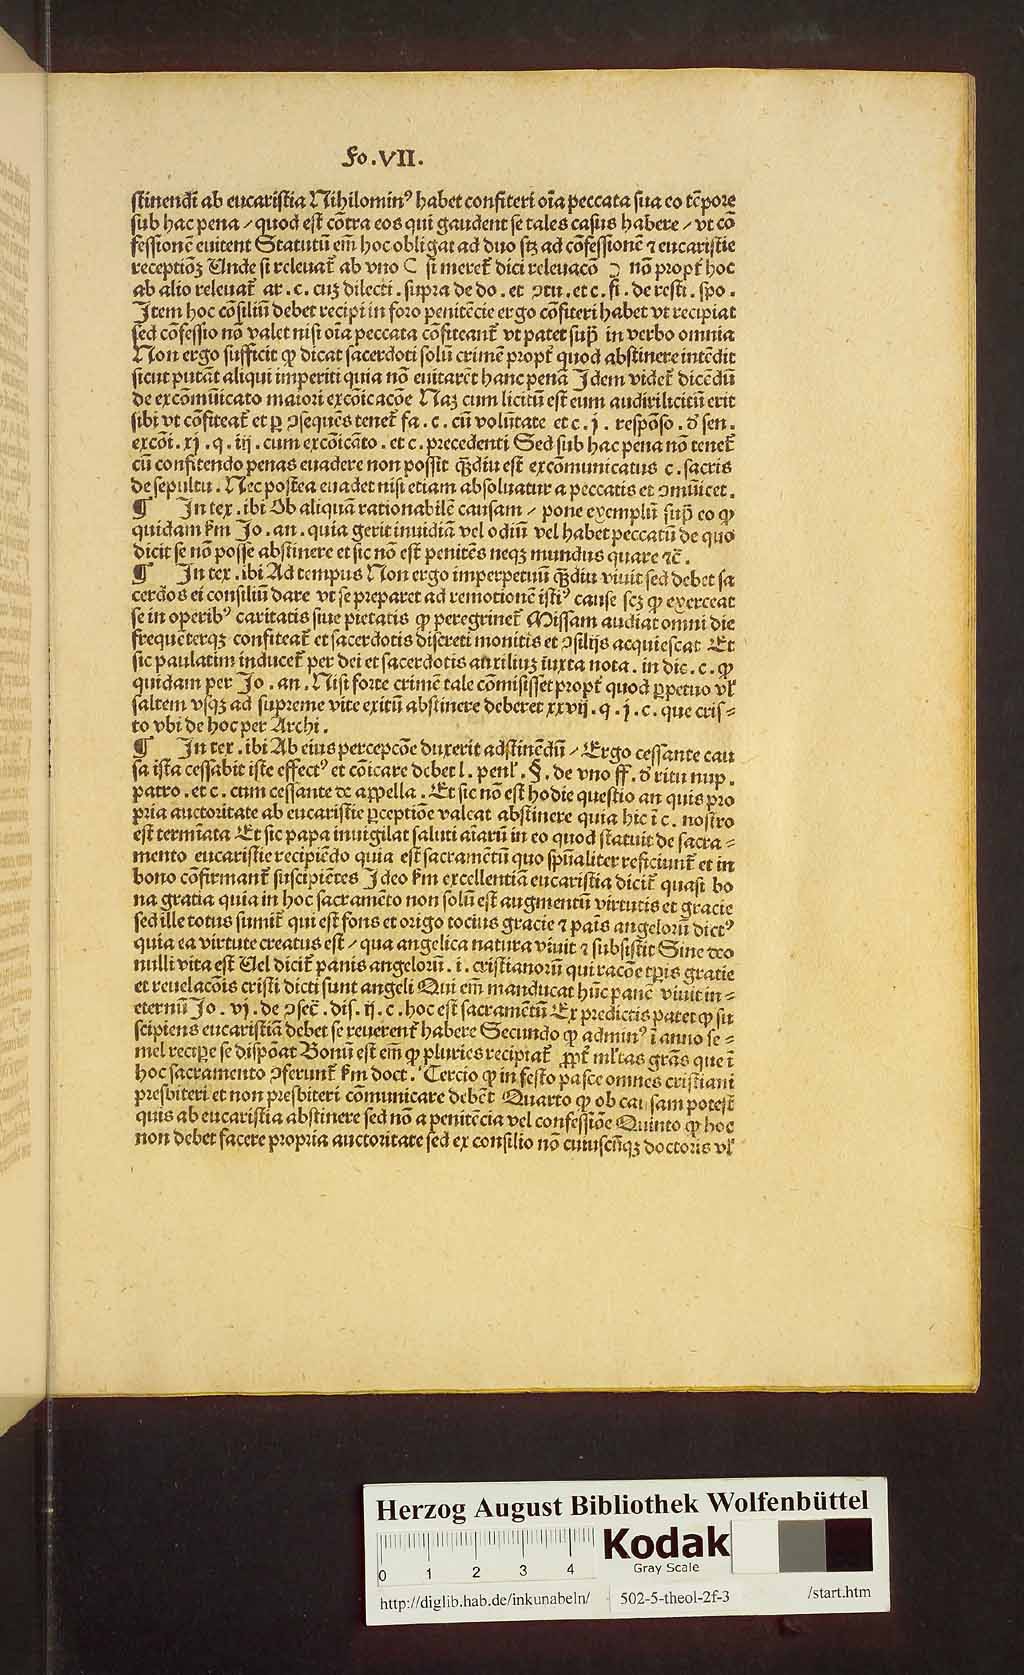 Fo.VII.
stinendi ab eucaristia Nihilominꝰ habet confiteri oīa peccata sua eo tēpore
sub hac pena / quod est cōtra eos qui gaudent se tales casus habere / vt cō
fessionē euitent Statutū em̄ hoc obligat ad duo sꝫ ad cōfessionē ⁊ eucaristie
receptiōꝫ Unde si releuat̄ ab vno ( si meret̄ dici releuacō ) nō propt̄ hoc
ab alio releuat̄ ar . c . cuꝫ dilecti . supra de do . et ꝯtu . et c . fi . de resti . spo .
Item hoc cōsiliū debet recipi in foro penitēcie ergo cōfiteri habet vt recipiat
sed cōfessio nō valet nisi oīa peccata cōfiteant̄ vt patet sup̄ in verbo omnia
Non ergo sufficit ꝙ dicat sacerdoti solū crimē propt̄ quod abstinere intēdit
sicut putāt aliqui imperiti quia nō euitarēt hanc penā Idem videt̄ dicēdū
de excōmūicato maiori excōicacōe Naꝫ cum licitū est eum audiri licitū erit
sibi vt cōfiteat̄ et ꝑ ꝯsequēs tenet̄ fa . c . cū volūtate et c . j . respōso . ꝺ̄ sen .
excōi . xj . q . iij . cum excōicāto . et c . precedenti Sed sub hac pena nō tenet̄
cū confitendo penas euadere non possit qꝫ̄diu est excōmunicatus c . sacris
de sepultu . Nec postea euadet nisi etiam absoluatur a peccatis et ꝯmūicet .
¶ In tex . ibi Ob aliquā rationabilē causam / pone exemplū sup̄ eo ꝙ
quidam ẜm Jo . an . quia gerit inuidiā vel odiū vel habet peccatū de quo
dicit se nō posse abstinere et sic nō est penitēs neqꝫ mundus quare ⁊c̄ .
¶ In tex . ibi Ad tempus Non ergo imperpetuū qꝫ̄diu viuit sed debet sa
cerdos ei consiliū dare vt se preparet ad remotionē istiꝰ cause scꝫ ꝙ exerceat
se in operibꝰ caritatis siue pietatis ꝙ peregrinet̄ Missam audiat omni die
frequēterqꝫ confiteat̄ et sacerdotis discreti monitis et ꝯsilijs acquiescat Et
sic paulatim inducet̄ per dei et sacerdotis auxiliuꝫ iuxta nota . in dic . c . ꝙ
quidam per Jo . an . Nisi forte crimē tale cōmisisset propt̄ quod ꝑpetuo vl̄
saltem vsqꝫ ad supreme vite exitū abstinere deberet xxvij . q . j . c . que cris⸗
to vbi de hoc per Archi .
¶ In tex . ibi Ab eius percepcōe duxerit adstinēdū / Ergo cessante cau
sa ista cessabit iste effectꝰ et cōicare debet l . penl̄ . §. de vno ff . ꝺ̄ ritu nup .
patro . et c . cum cessante de appella . Et sic nō est hodie questio an quis pro
pria auctoritate ab eucaristie ꝑceptiōe valeat abstinere quia hic ī c . nostro
est termīata Et sic papa inuigilat saluti aīarū in eo quod statuit de sacra⸗
mento eucaristie recipiēdo quia est sacramētū quo spūaliter reficiunt̄ et in
bono cōfirmant̄ suscipiētes Ideo ẜm excellentiā eucaristia dicit̄ quasi bo
na gratia quia in hoc sacramēto non solū est augmentū virtutis et gracie
sed ille totus sumit̄ qui est fons et origo tocius gracie ⁊ paīs angelorū dictꝰ
quia ea virtute creatus est / qua angelica natura viuit ⁊ subsistit Sine deo
nulli vita est Uel dicit̄ panis angelorū . i . cristianorū qui racōe tꝑis gratie
et reuelacōis cristi dicti sunt angeli Qui em̄ manducat hūc panē viuit in⸗
eternū Jo . vj . de ꝯsec̄ . dis . ij . c . hoc est sacramētū Ex predictis patet ꝙ su
scipiens eucaristiā debet se reuerent̄ habere Secundo ꝙ adminꝰ ī anno se⸗
mel recipe se dispōat Bonū est em̄ ꝙ pluries recipiat̄ ꝓpt̄ ml̄tas grās que ī
hoc sacramento ꝯferunt̄ ẜm doct . Tercio ꝙ in festo pasce omnes cristiani
presbiteri et non presbiteri cōmunicare debēt Quarto ꝙ ob causam potest
quis ab eucaristia abstinere sed nō a penitēcia vel confessiōe Quinto ꝙ hoc
non debet facere propria auctoritate sed ex consilio nō cuiuscūqꝫ doctoris vl̄
Herzog August Bibliothek Wolfenbüttel
Kodak
Gray Scale
0 1 2 3 4
http://diglib.hab.de/inkunabeln/ 502-5-theol-2f-3 /start.htm